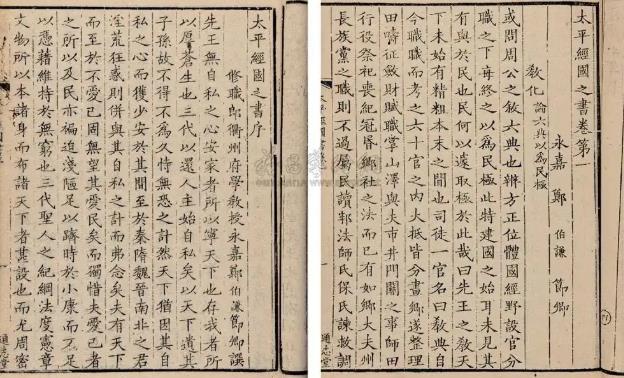 太平經國之書序
修職郎衢州府學教授永嘉鄭伯謙節卿譔
先王無自私之心安家者所以寧天下也存我者所
以厚蒼生也三代以還人主始自私矣以天下遺其
子孫故不得不為久恃無恐之計然天下猶因其自
私之心而獲少安於其間至於秦隋魏晉南北之君
淫荒狂惑則併與其自私之計而弗念矣夫有天下
而至於不愛已周無望其愛民矣而獨惜夫愛已者
之所以及民亦褊迫淺陋足以躋時於小康而不足
以憑藉維持於無窮也三代聖人之紀綱法度憲章
文物所以本諸身而布諸天下者甚設也而尤周密
通志堂
太平經國之書卷第一
永嘉 鄭 伯謙 節卿
教化 論六典以為民極
或問周公之敘六典也辨方正位體國經野設官分
職之下每終之以為民極此特建國之始耳未見其
有與於民也民何以遽取極於此哉曰先王之教天
下未始有精粗本末之間也司徒一官名曰教典自
今職職而考之六十官之內大抵皆分畫鄉遂整理
田疇征斂財賦職掌山澤與夫市井門關之事師田
行役祭祀喪紀冠昏鄉社之法而已有如鄉大夫州
長族黨之職則不過屬民讀邦法師氏保氏諫救調
通志堂